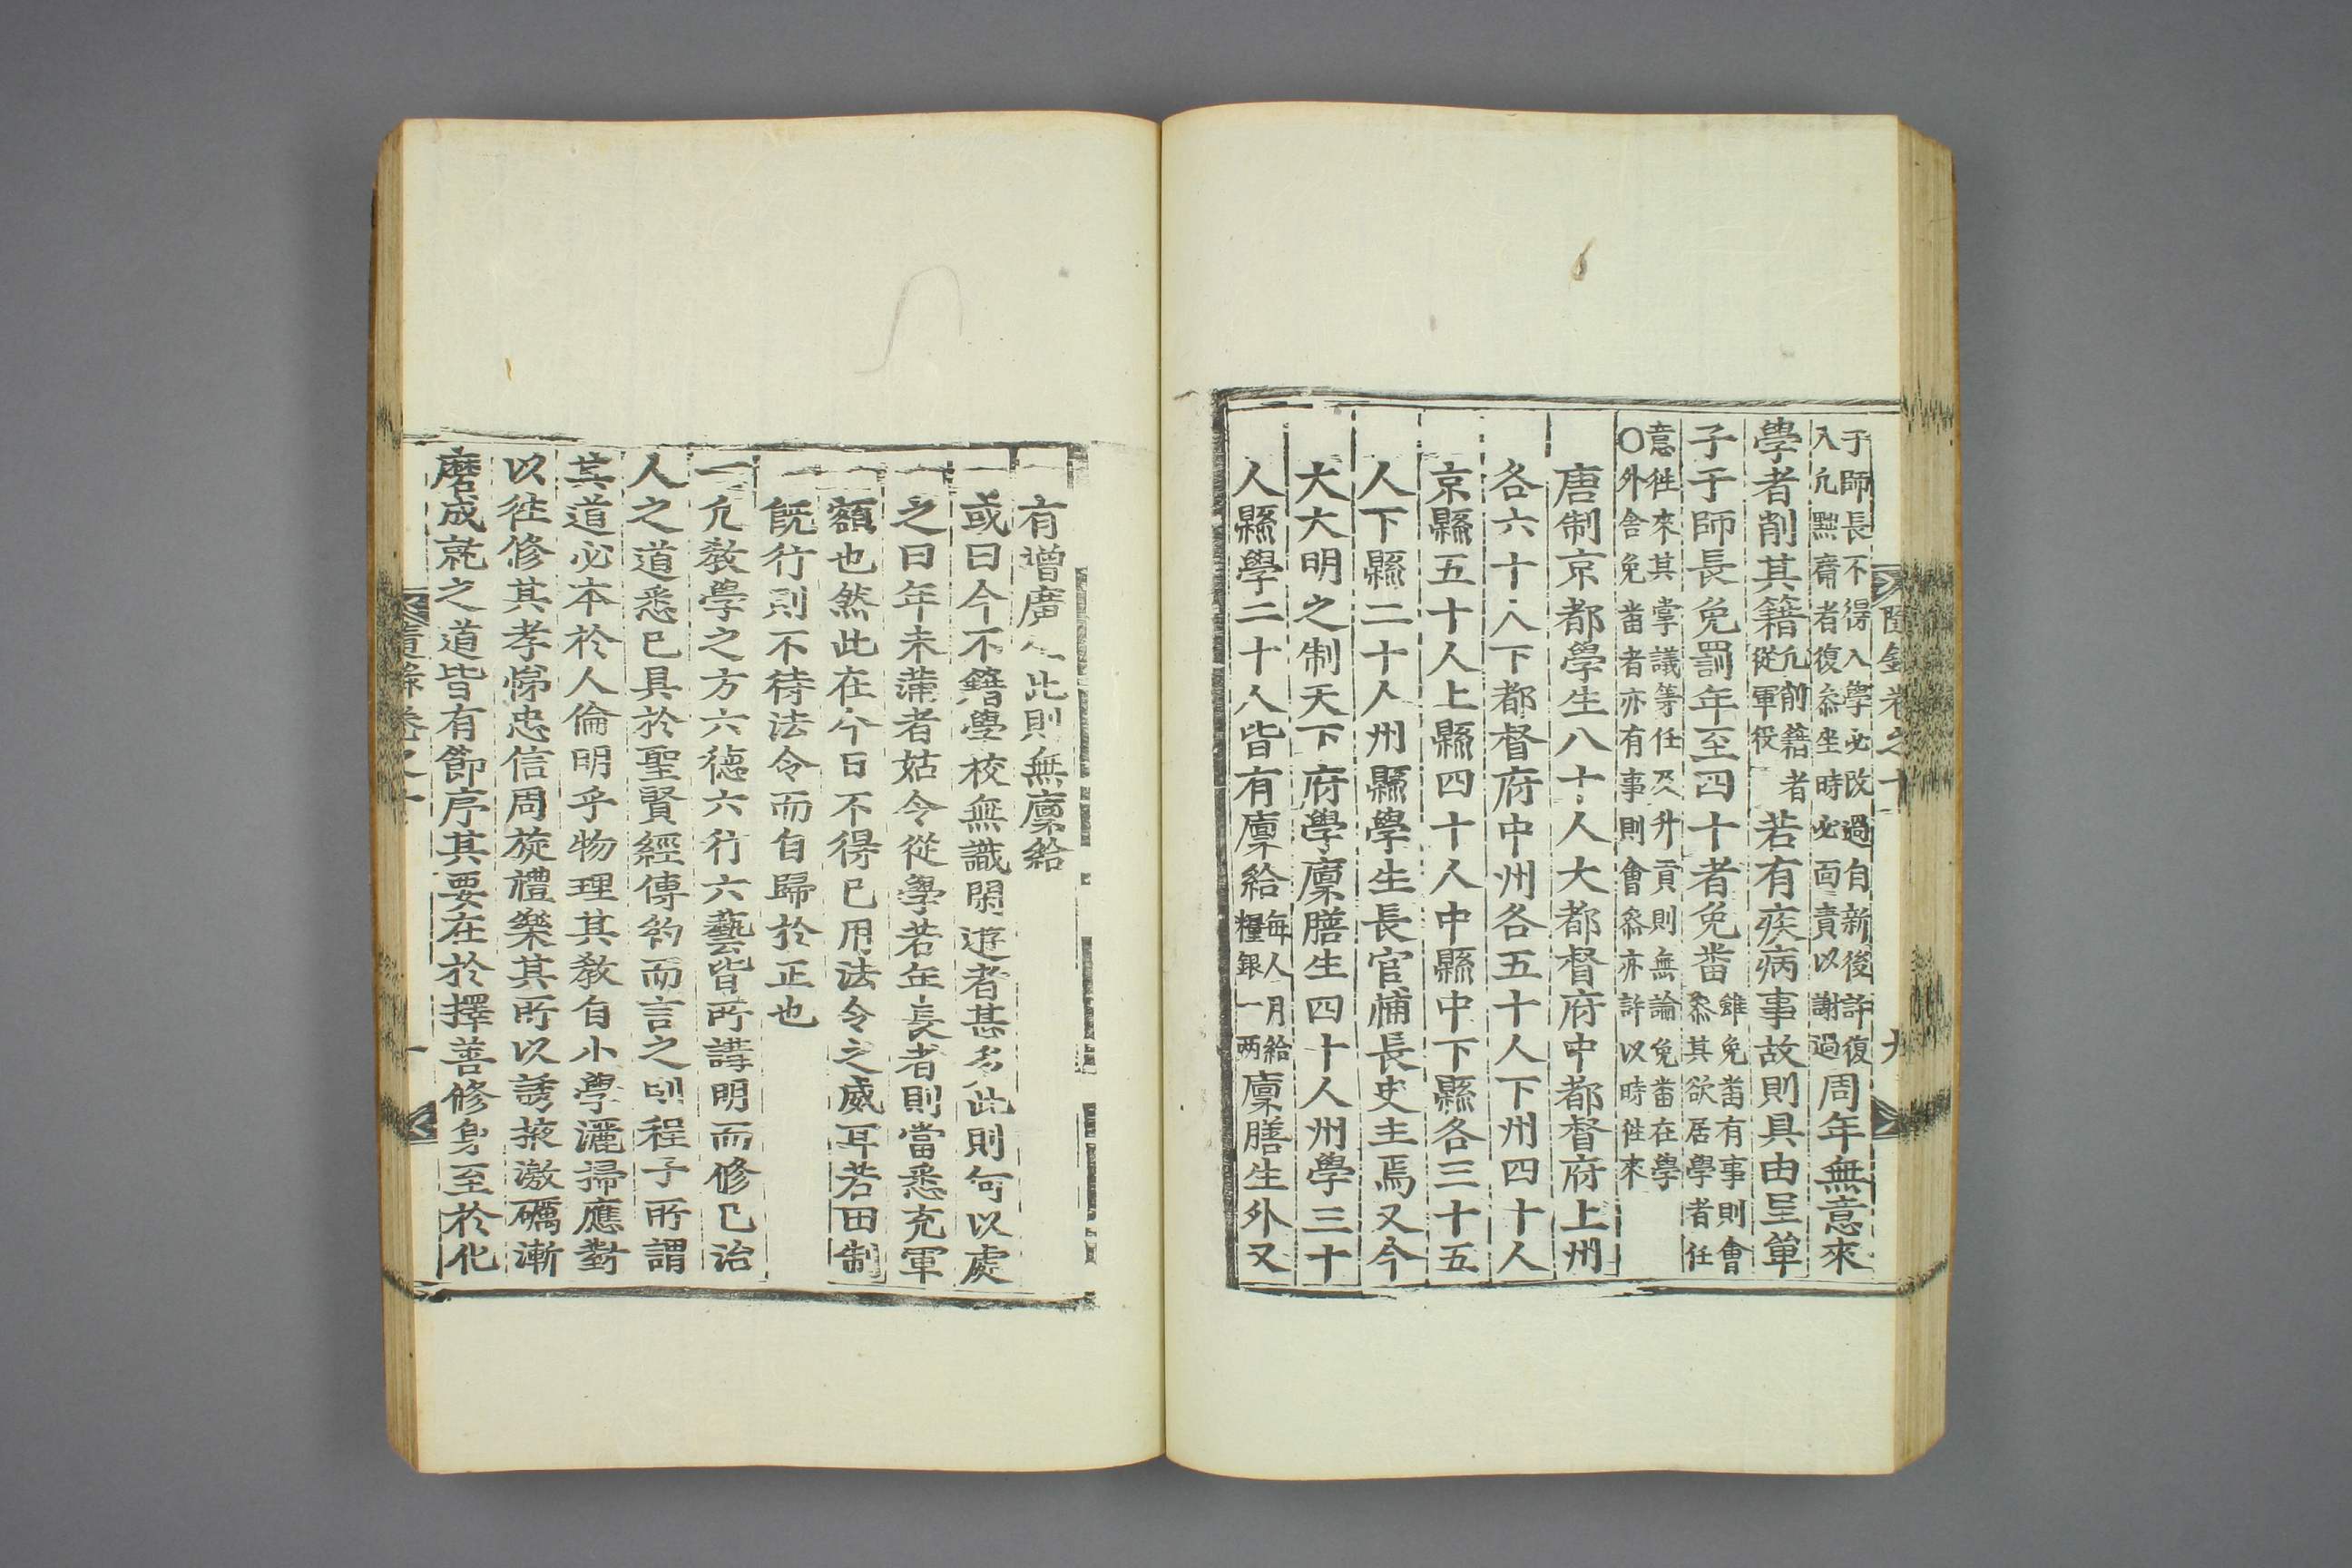 隨錄卷之十 九
于師長不得入學必改過自新後許復
入凡黜齋者復叅坐時必面責以謝過
周年無意來
學者削其籍
凡前籍者
從軍役
若有疾病事故則具由呈單
子于師長免罰年至四十者免番
雖免番有事則會
叅其欲居學者任
意徃來其掌議等任及升貢則無論免番在學
○外舍免番者亦有事則會叅亦許以時徃來
唐制京都學生八十人大都督府中都督府上州
各六十人下都督府中州各五十人下州四十人
京縣五十人上縣四十人中縣中下縣各三十五
人下縣二十人州縣學生長官補長史主焉又今
大大明之制天下府學廩膳生四十人州學三十
人縣學二十人皆有廩給
每人月給
糧銀一兩
廩膳生外又
有增廣 此則無廩給
一或曰今不籍學校無識閑遊者甚多此則何以處
之曰年未滿者姑令從學若年長者則當悉充軍
額也然此在今日不得已用法令之威耳若田制
旣行則不待法令而自歸於正也
一凡敎學之方六德六行六藝皆所講明而修己治
人之道悉已具於聖賢經傳約而言之則程子所謂
其道必本於人倫明乎物理其敎自小學灑掃應對
以徃修其孝悌忠信周旋禮樂其所以誘掖激礪漸
磨成就之道皆有節序其要在於擇善修身至於化
卷之十